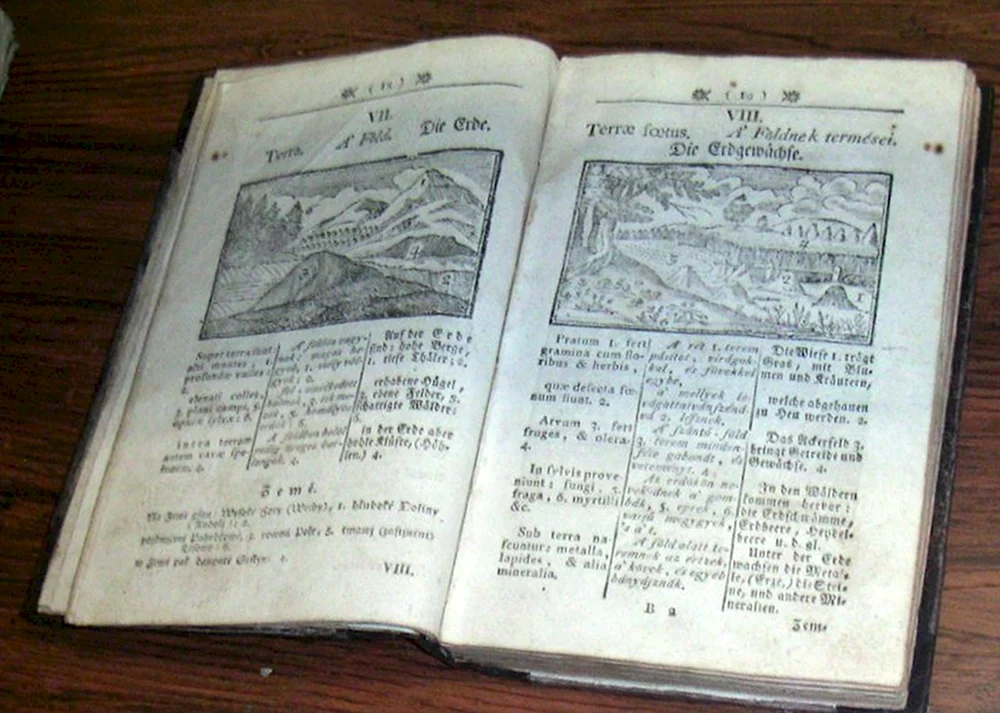 ( 18 )
VII.
Terra. A' Föld. Die Erde.
4
3
2
Super terra sunt
alti montes, 1.
profundæ valles
elevati colles,
3. plani campi, 5.
opacæ sylvæ: 6.
Intra terram
autem cavæ spe-
4.
A' földön
magas he-
gyek, 1. mély völ-
gyek: 2.
A' földben belöl
pedig üreges bar-
langok. 4.
Auf der Erde
sind: hohe Berge,
1. tiefe Thäler: 2.
erhabene Hügel,
3. ebene Felder, 5.
schattigte Wälder:
in der Erde aber
hohle Klüfte, (Höh-
len.) 4.
Země.
Na Zemi gsau: Wysoké Hory (Wrchy), 1. hluboké Doliny
2.
3. rowná Pole, 5.
6.
w Zemi pak 4.
VIII.
( 19 )
VIII.
Terræ fœtus. A' Földnek termései.
Die Erdgewächse.
4
3
2
1
Pratum 1. fert
gramina cum flo-
ribus & herbis,
quæ desecta fœ-
num fiunt. 2.
Arvum 3. fert
fruges, & olera.
4.
In sylvis prove-
niunt: fungi, 5.
fraga, 6. myrtilli
&c.
Sub terra na-
scuntur metalla,
lapides, & alia
mineralia.
A' rét 1. terem
pásitot, virágok-
kal, és füvekkel
egybe,
a' mellyek le-
vágattatván széná-
vá 2. lésznek.
A' szántó-föld
3. terem minden-
féle gabonát, és
veteményt. 4.
Az erdőkön ne-
vekednek a' gom-
bák, 5. eprek, 6.
A' föld alatt te-
remnek az értzek,
a' kövek, és egyéb
bányásznák.
Die Wiese 1. trägt
Gras, mit Blu-
men und Kräutern,
welche abgehauen
zu Heu werden. 2.
Das Ackerfeld 3.
bringt Getreide und
Gewächse. 4.
In den Wäldern
kommen hervor:
die Erdschwämme,
Erdbeere, Heydel-
beere u. d. gl.
Unter der Erde
wachsen die Metal-
le, (Erze,) die Stei-
ne, und andere Mi-
neralien.
B 2
Zem-